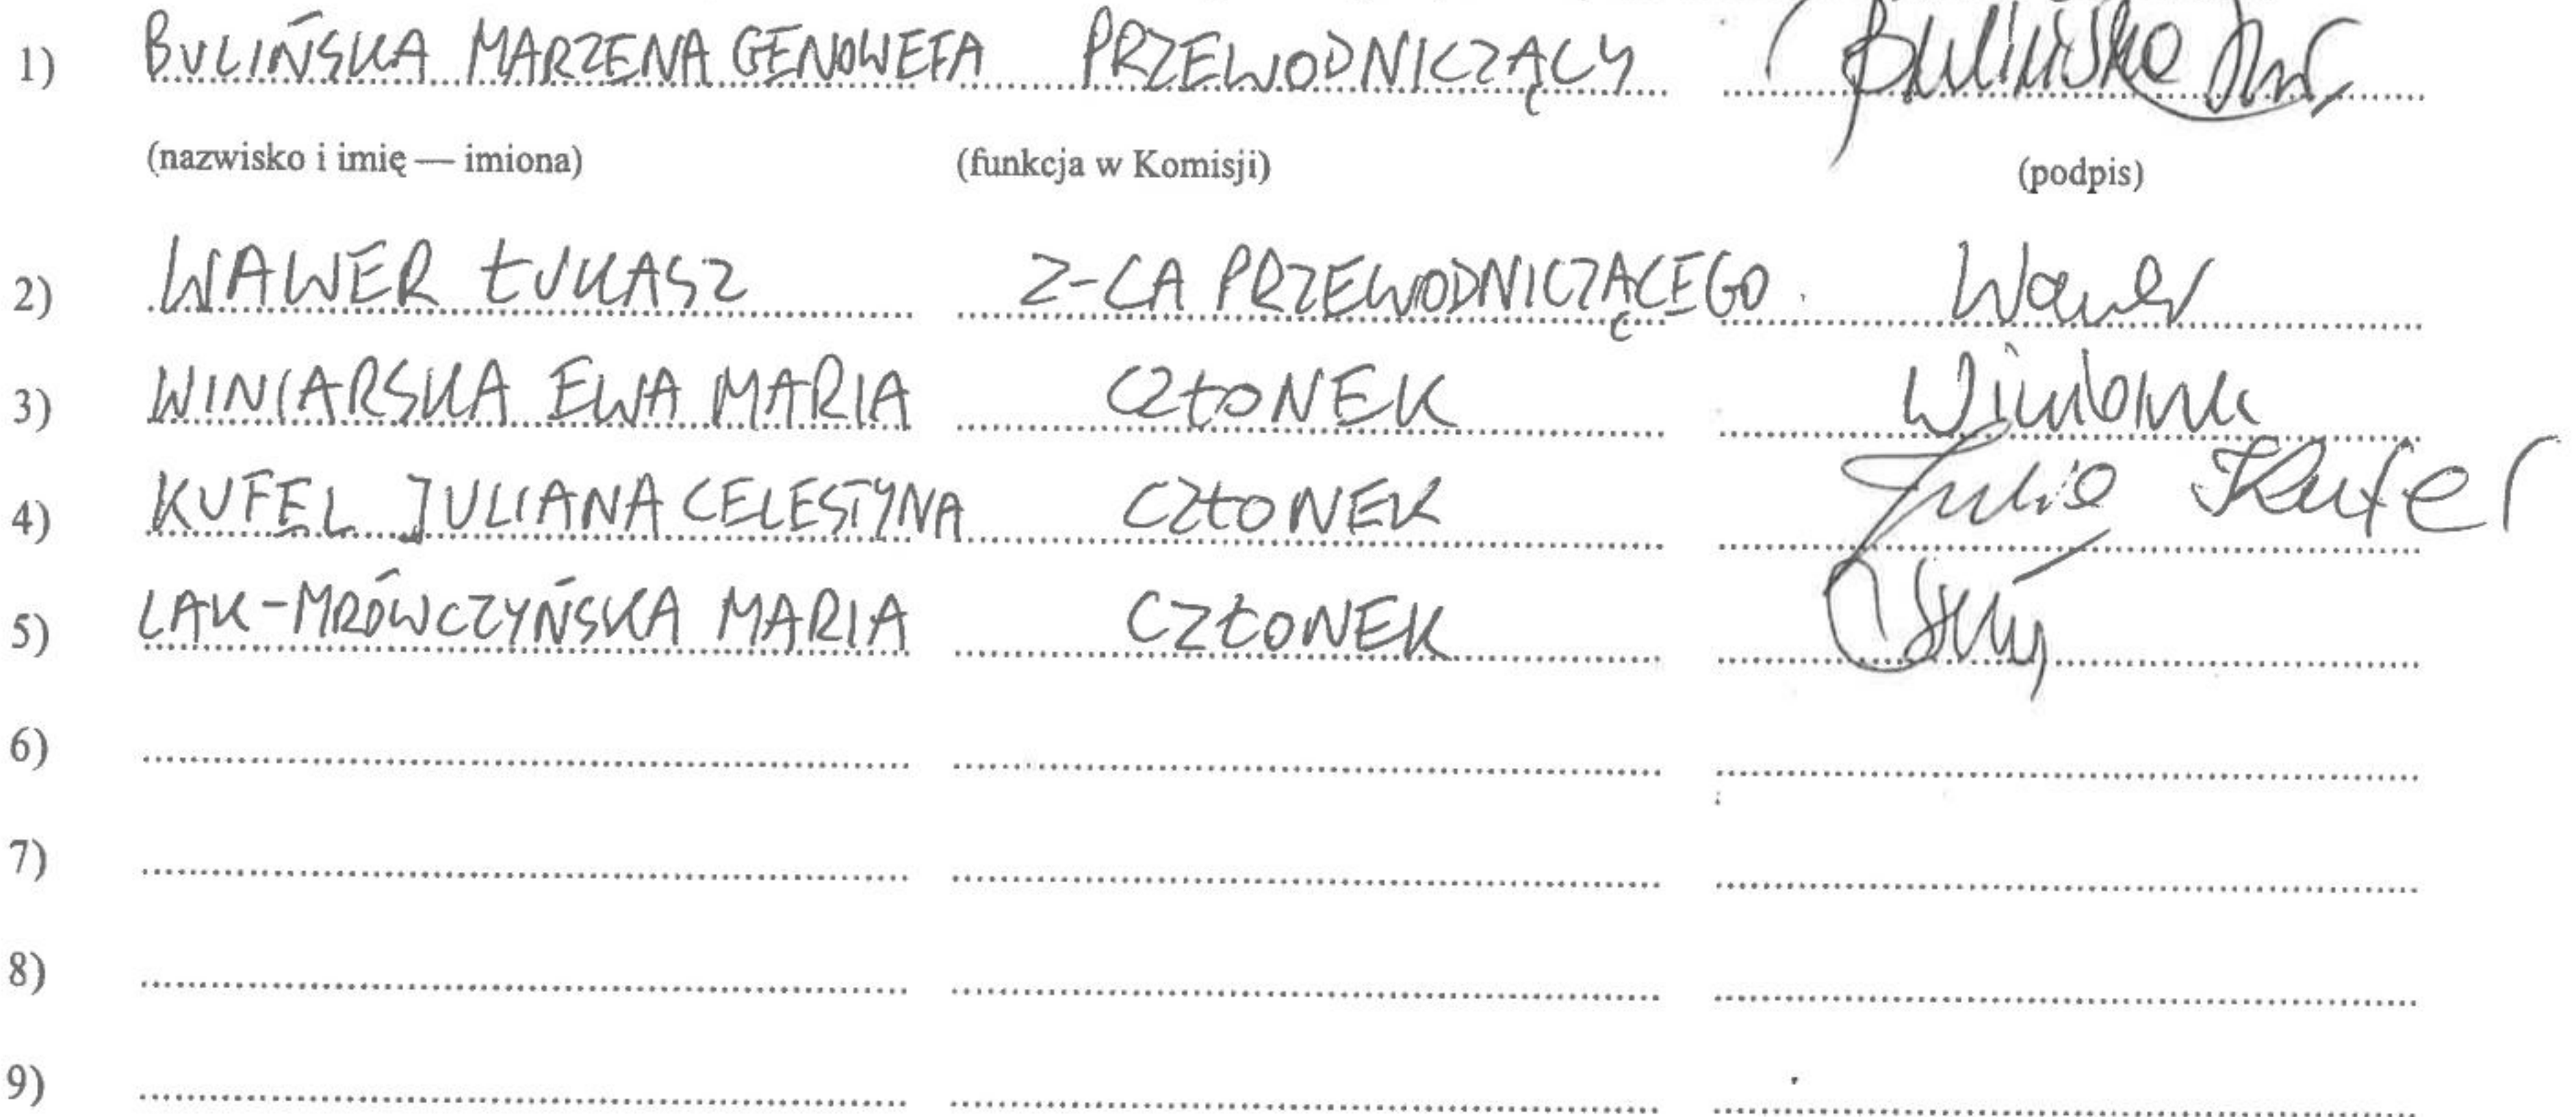 1) BULIŃSKA MARZENA GENOWEFA PRZEWODNICZĄCY Bulińska
(nazwisko i imię — imiona) (funkcja w Komisji) (podpis)
2) WAWER ŁUKASZ Z-CA PRZEWODNICZĄCEGO Wawer
3) WINIARSKA EWA MARIA CZŁONEK
4) KUFEL JULIANA CELESTYNA CZŁONEK Julia Kufel
5) LAK-MRÓWCZYŃSKA MARIA CZŁONEK
6)
7)
8)
9)